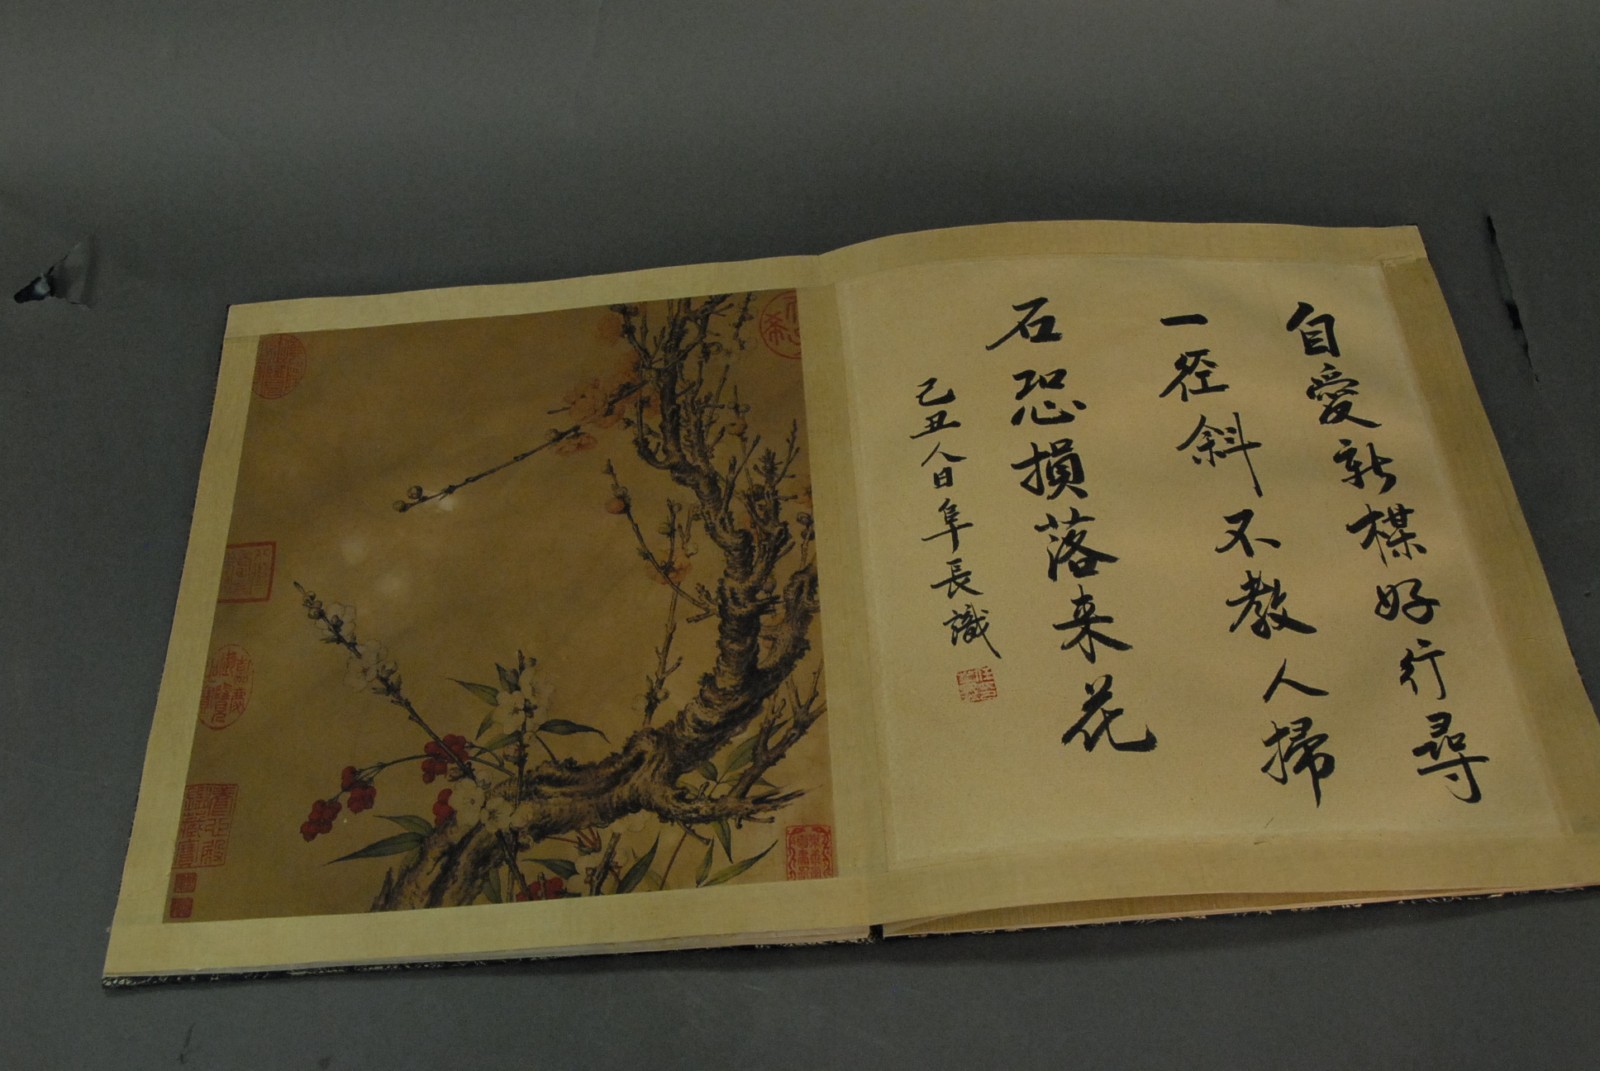 自愛新楳好行尋
一径斜不教人掃
石恐損落来花
己丑人日阜長識